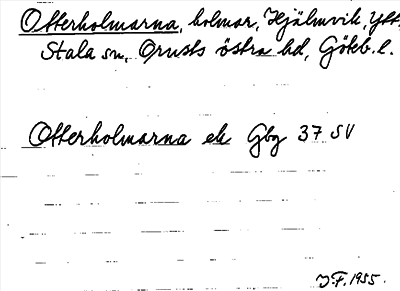 Otterholmarna, holmar, Hjälmvik, Ytt.
Stala sn, Orusts östra hd, Göteb. l.
Otterholmarna ek Gbg 37 SV
J.F. 1955.